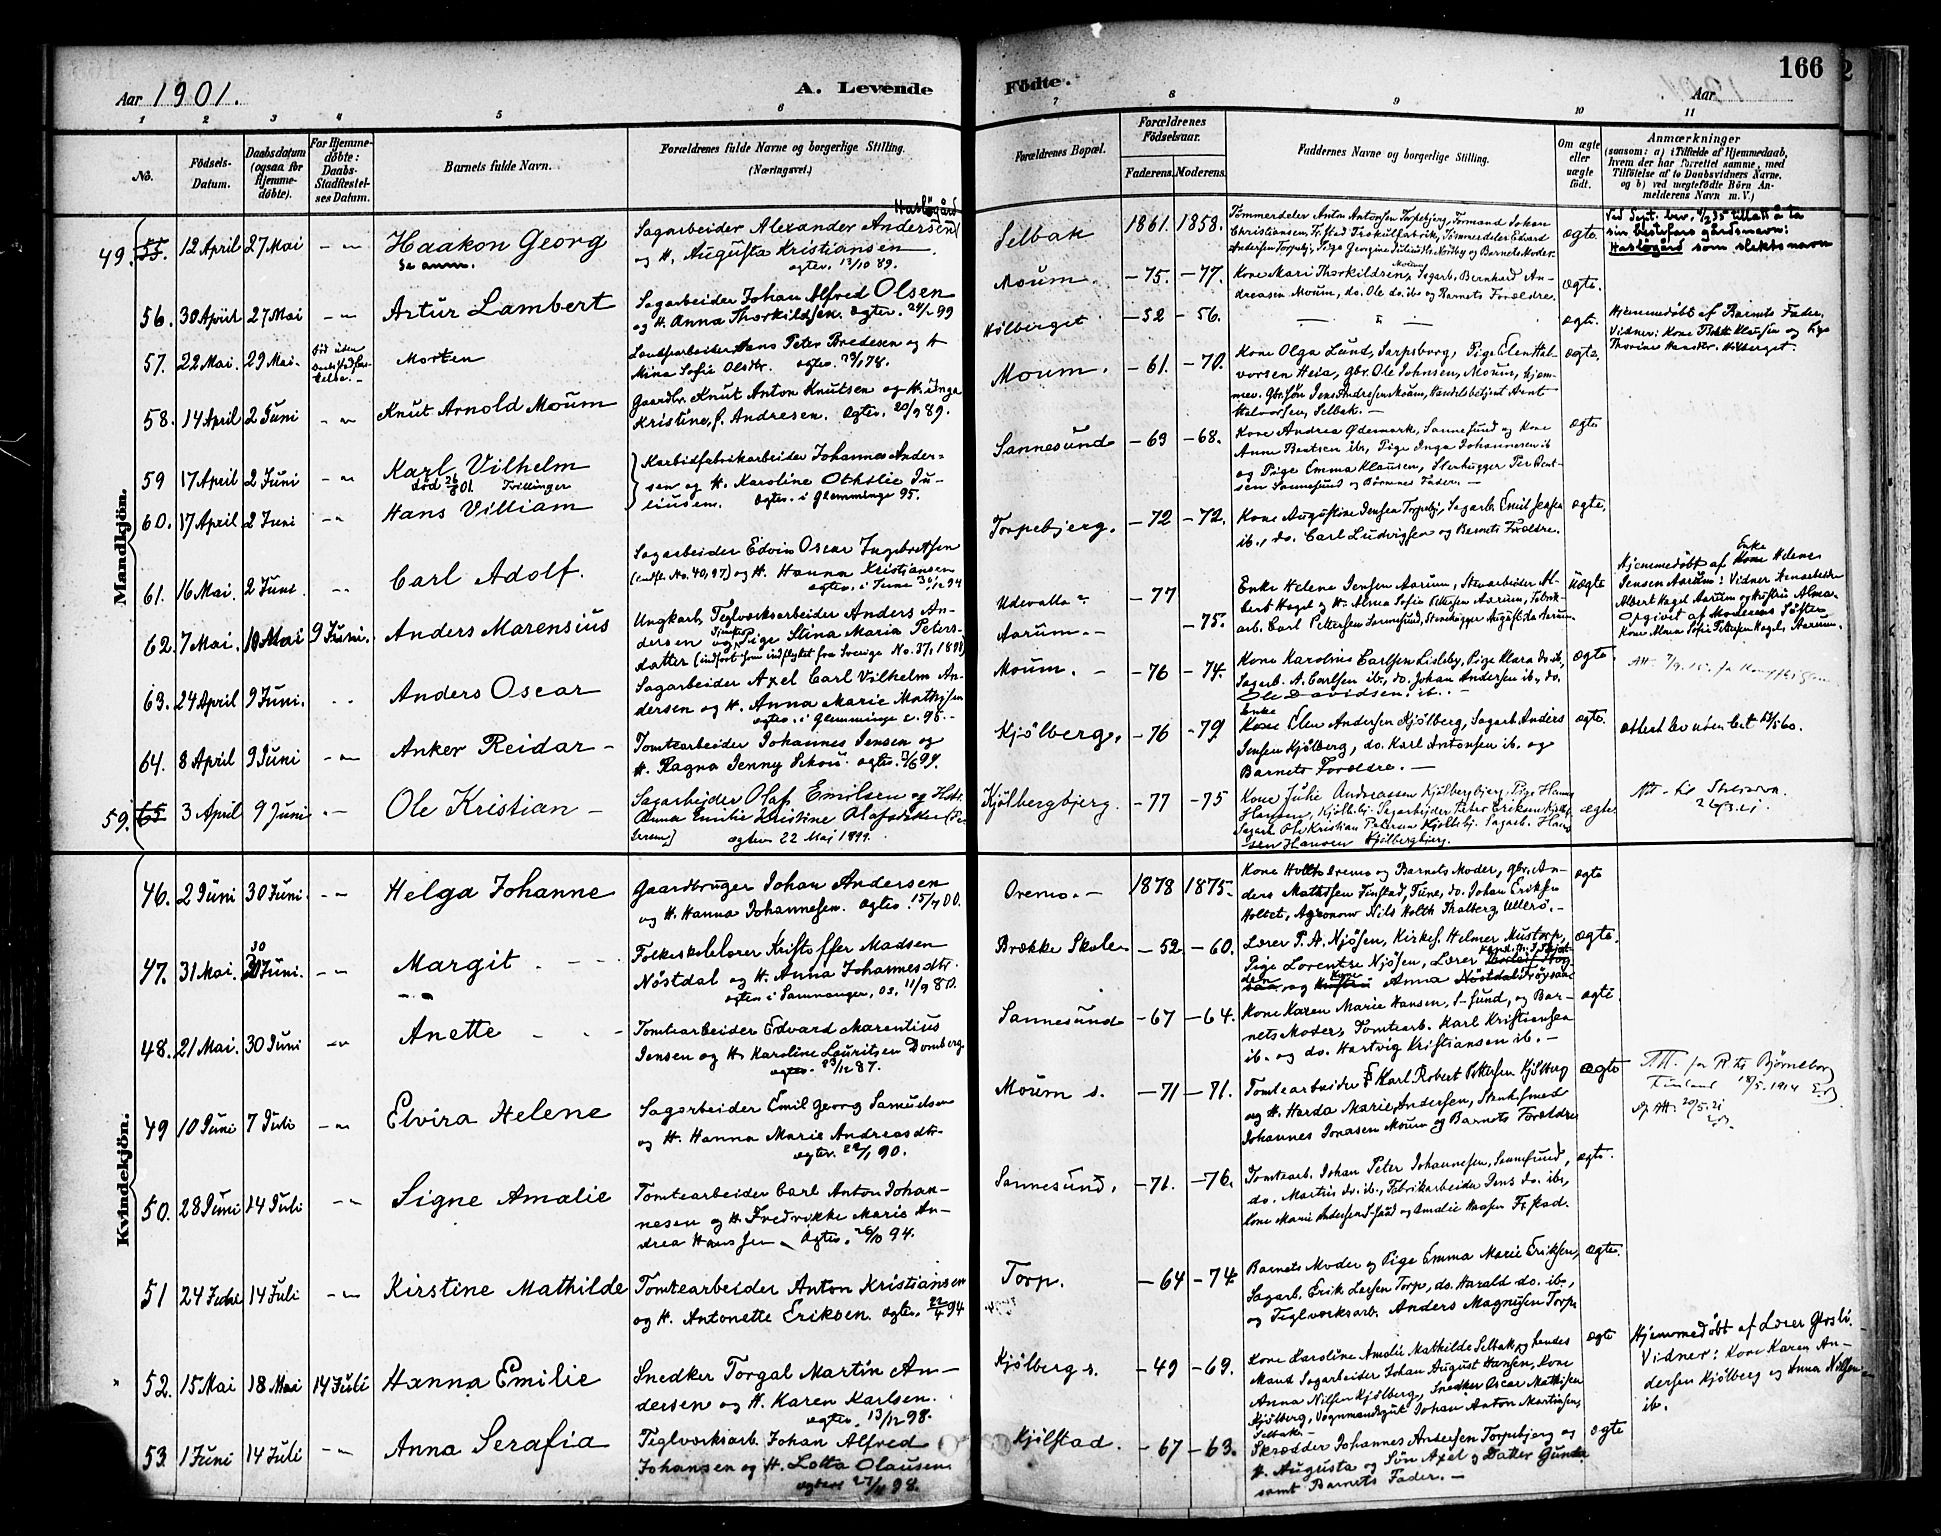 Aar 1901.
A. Levende
Födte.
Aar
166
1 2 3 4 5 6
7 8 9 10 11
No.
Födsels-
Datum.
Daabsdatum
(ogsaa for
Hjemme-
döbte).
For Hjemme-
döbte:
Daabs-
Stadfæstel-
ses Datum.
Barnets fulde Navn.
Forældrenes fulde Navne og borgerlige Stilling.
(Næringsvei.)
Forældrenes Bopæl.
Forældrenes
Födselsaar.
Faderens. Moderens.
Faddernes Navne og borgerlige Stilling.
Om ægte
eller
uægte
født.
Anmærkninger
(saasom: a) i Tilfælde af Hjemmedaab,
hvem der har forrettet samme, med
Tilföielse af to Daabsvidners Navne,
og b) ved uægtefödte Börn An-
melderens Navn m. V.)
Mandkjön.
49. 55. 12 April 27 Mai
Haakon Georg
Se anm.
Hasløgård
Sagarbeider Alexander Andersen
og H. Augusta Kristiansen
ægtev. 13/10 89.
Selbak 1861. 1858.
Tømmerdeler Anton Antonsen Torpebjerg, Formand Johan
ægte.
Ved Just. bev. 4/2 35 tillatt å ta
sin bestefars gårdsnavn:
Hasløgård som slektsnavn
56. 30 April 27 Mai
Artur Lambert
Sagarbeider Johan Alfred Olsen
og H. Anna Thorkildsen. Ægtev. 24/2 99
Moum. - 75. - 77.
Kone Mari Thorkildsen, Moum Sagarb. Bernhard An-
dreasen Moum, do. Ole do. ib. og Barnets Forældre.
ægte.
57. 22 Mai. 29 Mai.
Morten
Hans Peter Bredesen og H
Mina Sofie Olsdtr. ægtev.
Hølberget - 52 - 56.
ægte.
Hjemmedøbt af Barnets Fader.
58. 14 April 2 Juni
Knut Arnold Moum
Gaardbr. Knut Anton Knutsen og H. Inga
Kristine, f. Andresen. Ægtev. 20/9 89.
Moum. - 61. - 70.
Kone Olga Lund, Sarpsborg, Pige Elen Hal-
vorsen Heia, gbr. Ole Johnsen, Moum, hjem-
Halvorsen, Selbak. -
ægte.
59 17 April 2 Juni
Karl Vilhelm
død 26/8 01. Tvillinger
Karbidfabrikarbeider Johannes Ander-
sen og H. Karoline Othilie Ju-
liusen. Ægtev. i Glemminge 95.
Sannesund - 69 - 68.
Kone Andrea Ødemark, Sannesund og Kone
Anne Bentsen ib., Pige Inga Johannesen ib
og Pige Emma Klausen, Stenhugger Per Bent-
sen Sannesund og Børnenes Fader. -
ægte
60. 17 April 2 Juni
Hans Villiam
61. 16 Mai. 2 Juni
Carl Adolf.
Sagarbeider Edvin Oscar Ingebretsen
(indfl. No. 40, 97) og H. Hanna Kristiansen
Torpebjerg. - 72 - 72.
Kone Augustine Jensen Torpebj., Sagarb. Emil Jensen
ib., do. Carl Ludvigsen og Barnets Forældre.
ægte.
62. 7 Mai. 10 Mai 9 Juni.
Anders Marensius
Ungkarl, Teglværksarbeider Anders An-
dersen og Pige Stina Maria Peters-
datter (indført som indflyttet fra Sverige No. 37, 1898)
Udevalla - 77
Aarum. - - 75.
Enke Helene Jensen Aarum, Stenarbeider Al-
bert Hagel og H. Alma Sofie Pettersen Aarum, Fabrik-
arb. Carl Pettersen Sannesund, Stenhugger August do Aarum.
Uægte
Hjemmedøbt af Enke Kone Helene
Jensen Aarum: Vidner Stenarbeider
Albert Hagel Aarum og Hustru Alma.
Opgivet af Moderens Søster
Kone Alma Sofie Pettersen Hagel, Aarum.
63. 24 April 9 Juni.
Anders Oscar
Sagarbeider Axel Carl Vilhelm An-
dersen og H. Anna Marie Mathisen
ægtev. i Glemminge c. 95. -
Moum. - - 76 - 74.
Kone Karolius Carlsen Lisleby, Pige Klara do ib,
Sagarb. A. Carlsen ib., do. Johan Andersen ib., do.
Ole Davidsen. ib. -
ægte.
64. 8 April 9 Juni
Anker Reidar -
Tomtearbeider Johannes Jensen og
H. Ragna Jenny Skou. ægtev.
Kjölberg. - 76 - 79
Enke Kone Elen Andersen Kjölberg, Sagarb. Anders
Jensen Kjölberg, do. Karl Antonsen ib. og
Barnets Forældre. -
ægte.
59. 65. 3 April 9 Juni
Ole Kristian -
Sagarbejder Olaf Emilsen og Hstr.
Anna Emilie Kristine Olafsdatter
ægtev 22 Maj 1899.
Kjölbergbjerg. - 77 - 75
Kone Julie Andreassen Kjölbergbjerg, Pige Hanna
Hansen, Kjölbebj. Sagarbejder Peter Eriksen
Sagarb Ole Kristian Petersen Kjölbebj. Sagarb. Hans
sen Hansen Kjölbergbjerg.
ægte
Kvindekjön.
46. 2 Juni 30 Juni.
Helga Johanne
Gaardbruger Johan Andersen
og H. Hanna Johannesen. Ægtev. 15/4 00.
Oremo. - 1878 1875.
Kone Holt Oremo og Barnets Moder, gbr. An-
ders Mathisen Tinstad, Tune, do. Johan Eriksen
Holtet, Agronom Nils Holth Thalberg, Ullerø. -
ægte
47. 31 Mai. 30 Juni.
Margit
Folkeskolelærer Kristoffer Madsen
Nöstdal og H. Anna Johannesdtr.
ægtev i Samnanger, Os, 11/9 80.
Brække Skole - 52 - 60.
Lærer P. A. Njösen, Kirkes. Helmer Mustorp,
Pige Lorentze Njösen, Lærer
og Anna
ægte.
48. 21 Mai. 30 Juni
Anette
Tomtearbeider Edvard Marentius
Jensen og H. Karoline Lauritsen Domberg
Sannesund - 67 - 64.
Kone Karen Marie Hansen, S-sund, og Bar-
nets Moder, Tomtearb. Karl Kristiansen
ib. og do. Hartvig Kristiansen ib. -
ægte.
49 10 Juni 7 Juli
Elvira Helene
Sagarbeider Emil Georg Samuelsen
og H. Hanna Marie Andreasdtr.
ægtev. 22/1 90.
Moum s. - 71 - 71.
Tomtearbeider Karl Robert Pettersen Kjölberg
og H. Harda Marie Andersen, Stenhsmed
Johannes Jonasen Moum og Barnets Forældre
ægte
Bjørneborg
Finland 18/5. 1914
50. 28 Juni 14 Juli
Signe Amalie
Tomtearbeider Carl Anton Johan-
nesen og H. Fredrikke Marie An-
drea Hanssen - Ægtev. 26/10 94.
Sannesund. - 71. - 76.
Tomtearb. Johan Peter Johannesen, Sannesund,
do. Martin do. ib., Fabrikarbeider Jens do. ib.,
Kone Marie Andersen S-sund og Amalie Hansen Fr.stad.
ægte.
51 24 Juni 14 Juli
Kirstine Mathilde
Tomtearbeider Anton Kristiansen
og H. Antonette Eriksen. Ægtev. 22/4 94
Torp. - 64 - 74
Barnets Moder og Pige Emma Marie Eriksen,
Sagarb. Erik Larsen Torp, do. Harald do. ib.,
og Teglværksarb. Anders Magnusen Torp.
ægte.
52. 15 Mai 18 Mai 14 Juli
Hanna Emilie
Snedker Torgal Martin An-
dersen og H. Karen Karlsen.
ægtev. 13/12 98.
Kjölberg s. - 49 - 69.
Kone Karoline Amalie Mathilde Selbak og hendes
Mand Sagarbeider Johan August Hansen, Kone
Anna Nilsen Kjölberg, Snedker Oscar Mathisen
Kjölberg, Vognmandsgut Johan Anton Martinsen,
Selbak. -
ægte
Hjemmedøbt af Lærer
Vidner: Kone Karen An-
dersen Kjölberg og Anna Nilsen
ib.
53. 1 Juni 14 Juli
Anna Serafia
Teglværksarb. Johan Alfred
Johansen og H. Lotta Olausen
ægtev 27/11 98.
Kjölstad. - 67 - 63.
Skrædder Johannes Andersen Torpebjerg og
H. Augusta og Søn Axel og Datter Gunda
samt Barnets Fader. -
ægte